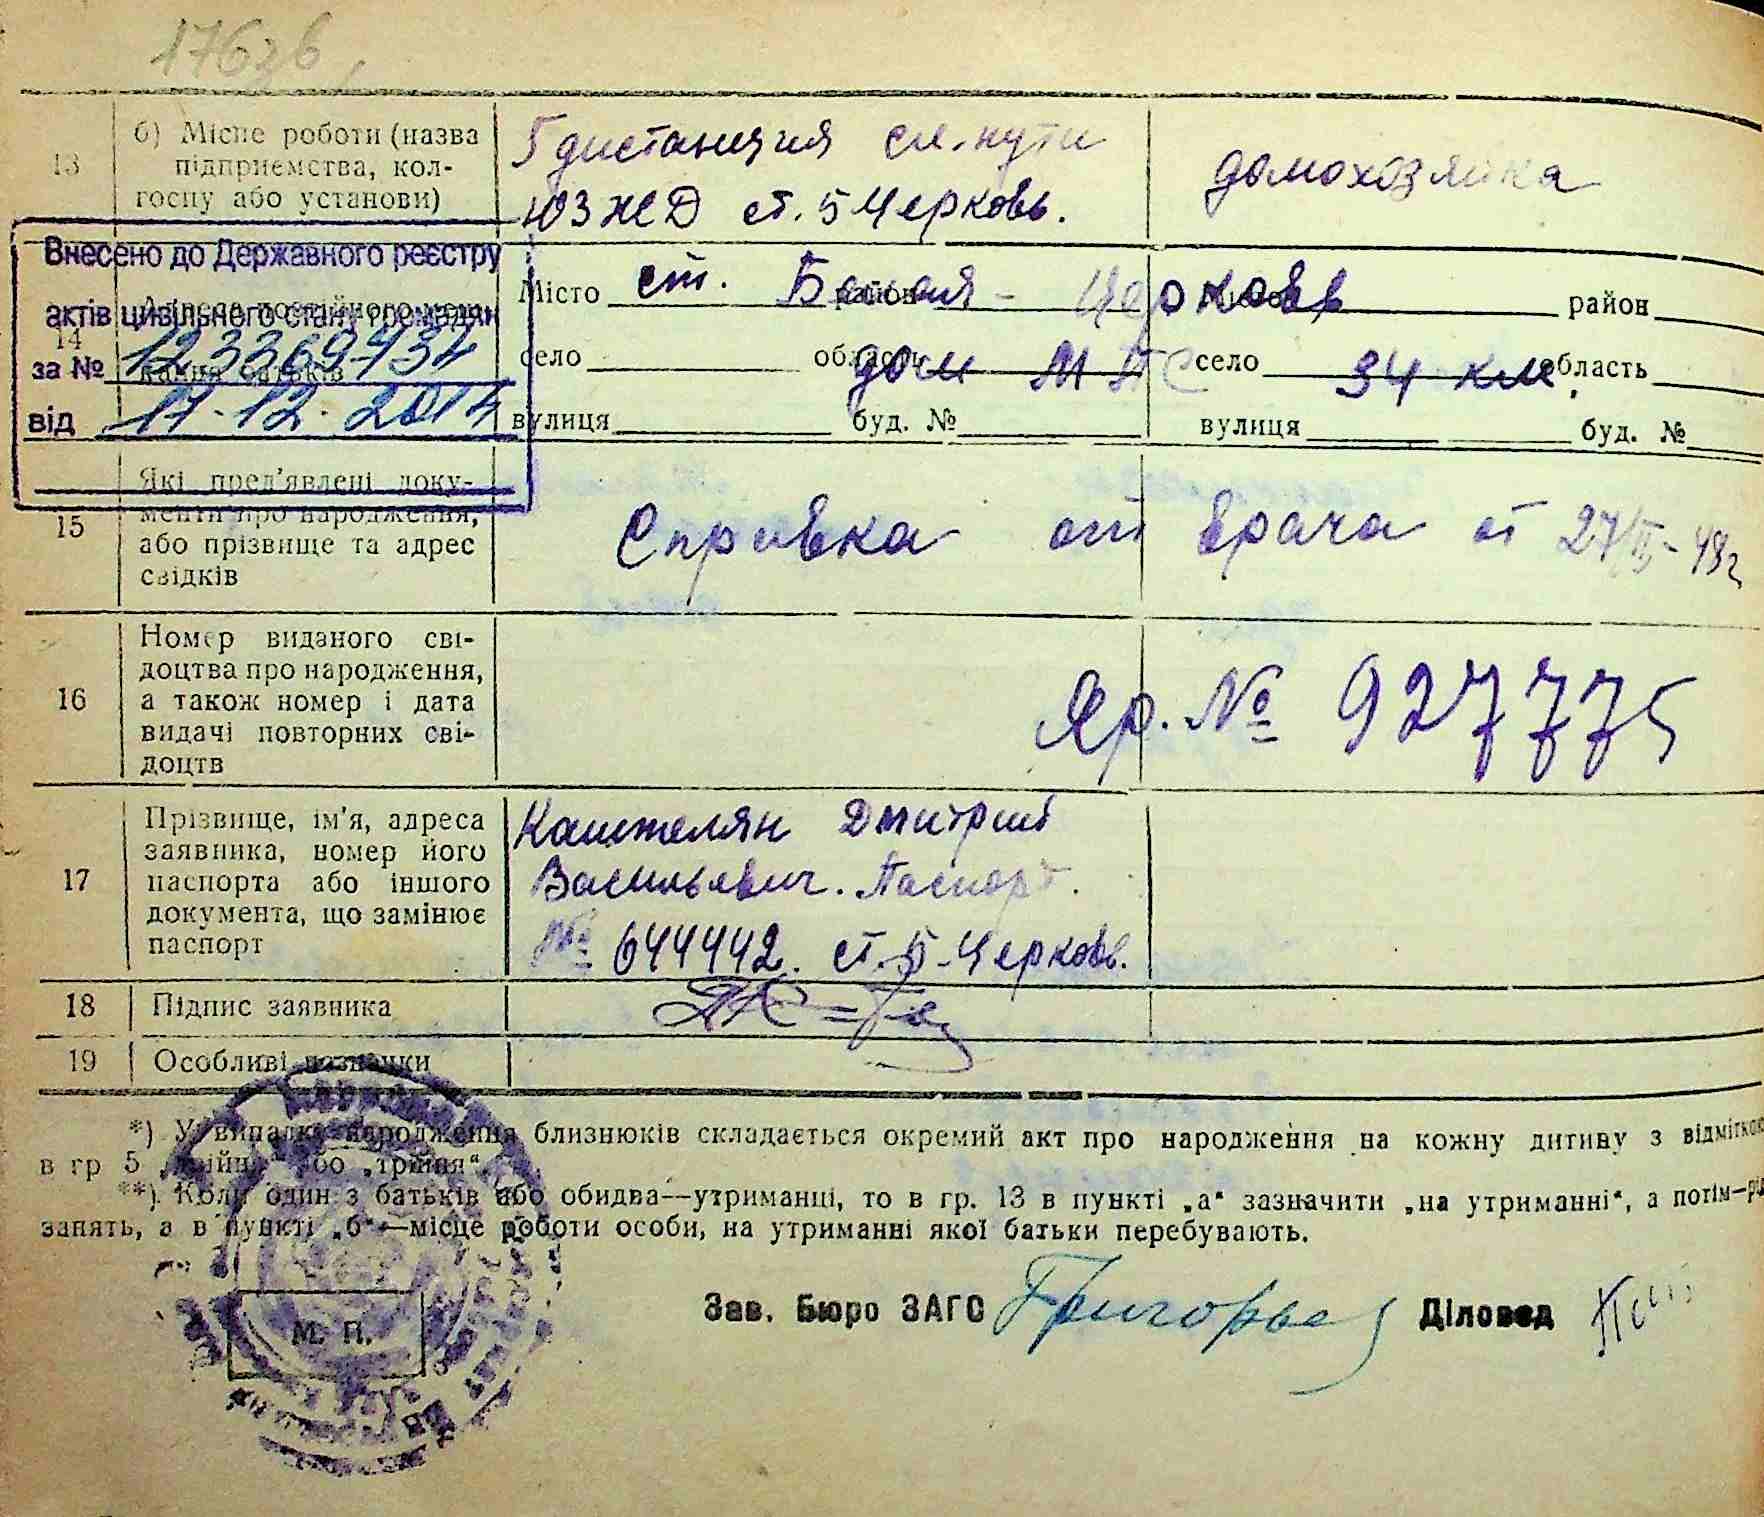 17626
13
б) Місце роботи (назва
підприємства, кол-
госпу або установи)
5 дистанция сл. пути
ЮЗЖД ст. Б Церковь.
домохозяйка
Внесено до Державного реєстру
актів цивільного стану громадян
за № 123369434
від 17.12.2014
14
Місто ст. Белая - Церковь район
село область дом
34 км.
вулиця буд. №
село область
вулиця буд. №
15
Які пред'явлені доку-
менти про народження,
або прізвище та адрес
свідків
Справка от врача от 27/II-48г
16
Номер виданого сві-
доцтва про народження,
а також номер і дата
видачі повторних сві-
доцтв
Яр. № 927775
17
Прізвище, ім'я, адреса
заявника, номер його
паспорта або іншого
документа, що замінює
паспорт
Каштелян Дмитрий
Васильевич. Паспорт.
№ 644442. ст. Б-Церковь.
18
Підпис заявника
19
Особливі позначки
*) У випадку народження близнюків складається окремий акт про народження на кожну дитину з відміткою
в гр 5 „двійня“ або „трійня“.
**) Коли один з батьків або обидва—утриманці, то в гр. 13 в пункті „а“ зазначити „на утриманні“, а потім—рід
занять, а в пункті „б“—місце роботи особи, на утриманні якої батьки перебувають.
Зав. Бюро ЗАГС Григорьев Діловод
М. П.